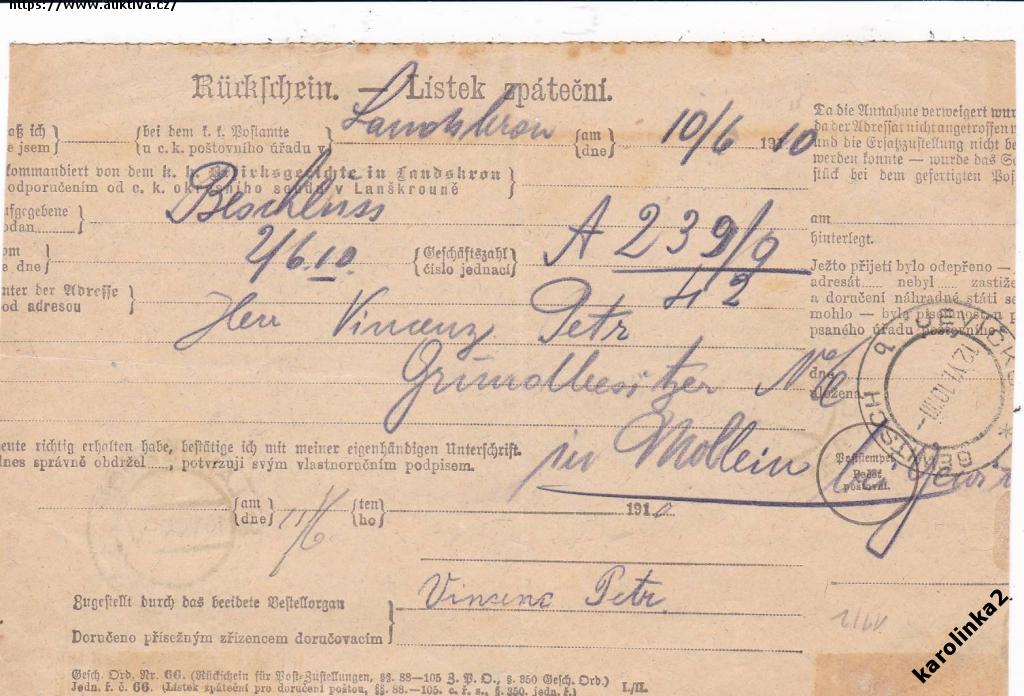 https://www.auktiva.cz/
Rückschein. — Lístek zpáteční.
aß ich
e jsem
bei dem k. k. Postamte
u c. k. poštovního úřadu v
Landskron
am
dne
10/6 1910
kommandiert von dem k. k. Bezirksgerichte in Landskron
odporučením od c. k. okresního soudu v Lanškrouně
ufgegebene
odan
Beschluss
om
e dne
2/6.10.
Geschäftszahl
číslo jednací
A 239/9
42
nter der Adresse
od adresou
Herr Vincenz Petr
Grundbesitzer
in Mollein bei
eute richtig erhalten habe, bestätige ich mit meiner eigenhändigen Unterschrift.
dnes správně obdržel....., potvrzuji svým vlastnoručním podpisem.
am
dne
11/6
ten
ho
191
Vincenc Petr
Zugestellt durch das beeidete Bestellorgan
Doručeno přísežným zřízencem doručovacím
Gesch. Ord. Nr. 66. (Rückschein für Post-Zustellungen, §§. 88—105 Z. P. O., §. 350 Gesch. Ord.)
Jedn. ř. č. 66. (Lístek zpáteční pro doručení poštou, §§. 88.—105. c. ř. s., §. 350. jedn. ř.)
I./II.
Da die Annahme verweigert wur
da der Adressat nicht angetroffen w
und die Ersatzzustellung nicht be
werden konnte — wurde das Sc
stück bei dem gefertigten Pos
am
hinterlegt.
Ježto přijetí bylo odepřeno —
adresát..... nebyl..... zastiže
a doručení náhradné státi se
mohlo — byla písemnost
psaného úřadu poštovního
dne
uložena
12.VI.10
Poststempel
Pečeť
poštovní.
karolinka2